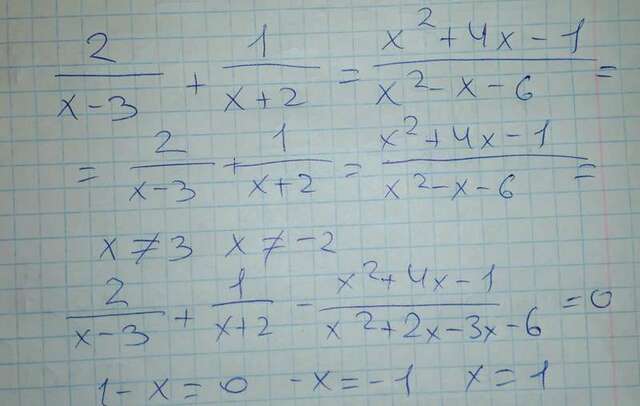 2/(x-3) + 1/(x+2) = (x²+4x-1)/(x²-x-6) =
= 2/(x-3) + 1/(x+2) = (x²+4x-1)/(x²-x-6) =
x≠3 x≠-2
2/(x-3) + 1/(x+2) - (x²+4x-1)/(x²+2x-3x-6) = 0
1-x=0 -x=-1 x=1